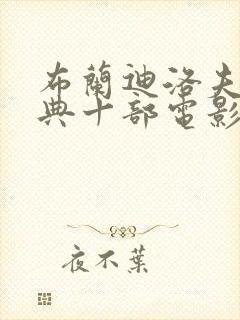 布蘭迪洛夫
典十部電影
夜不葉